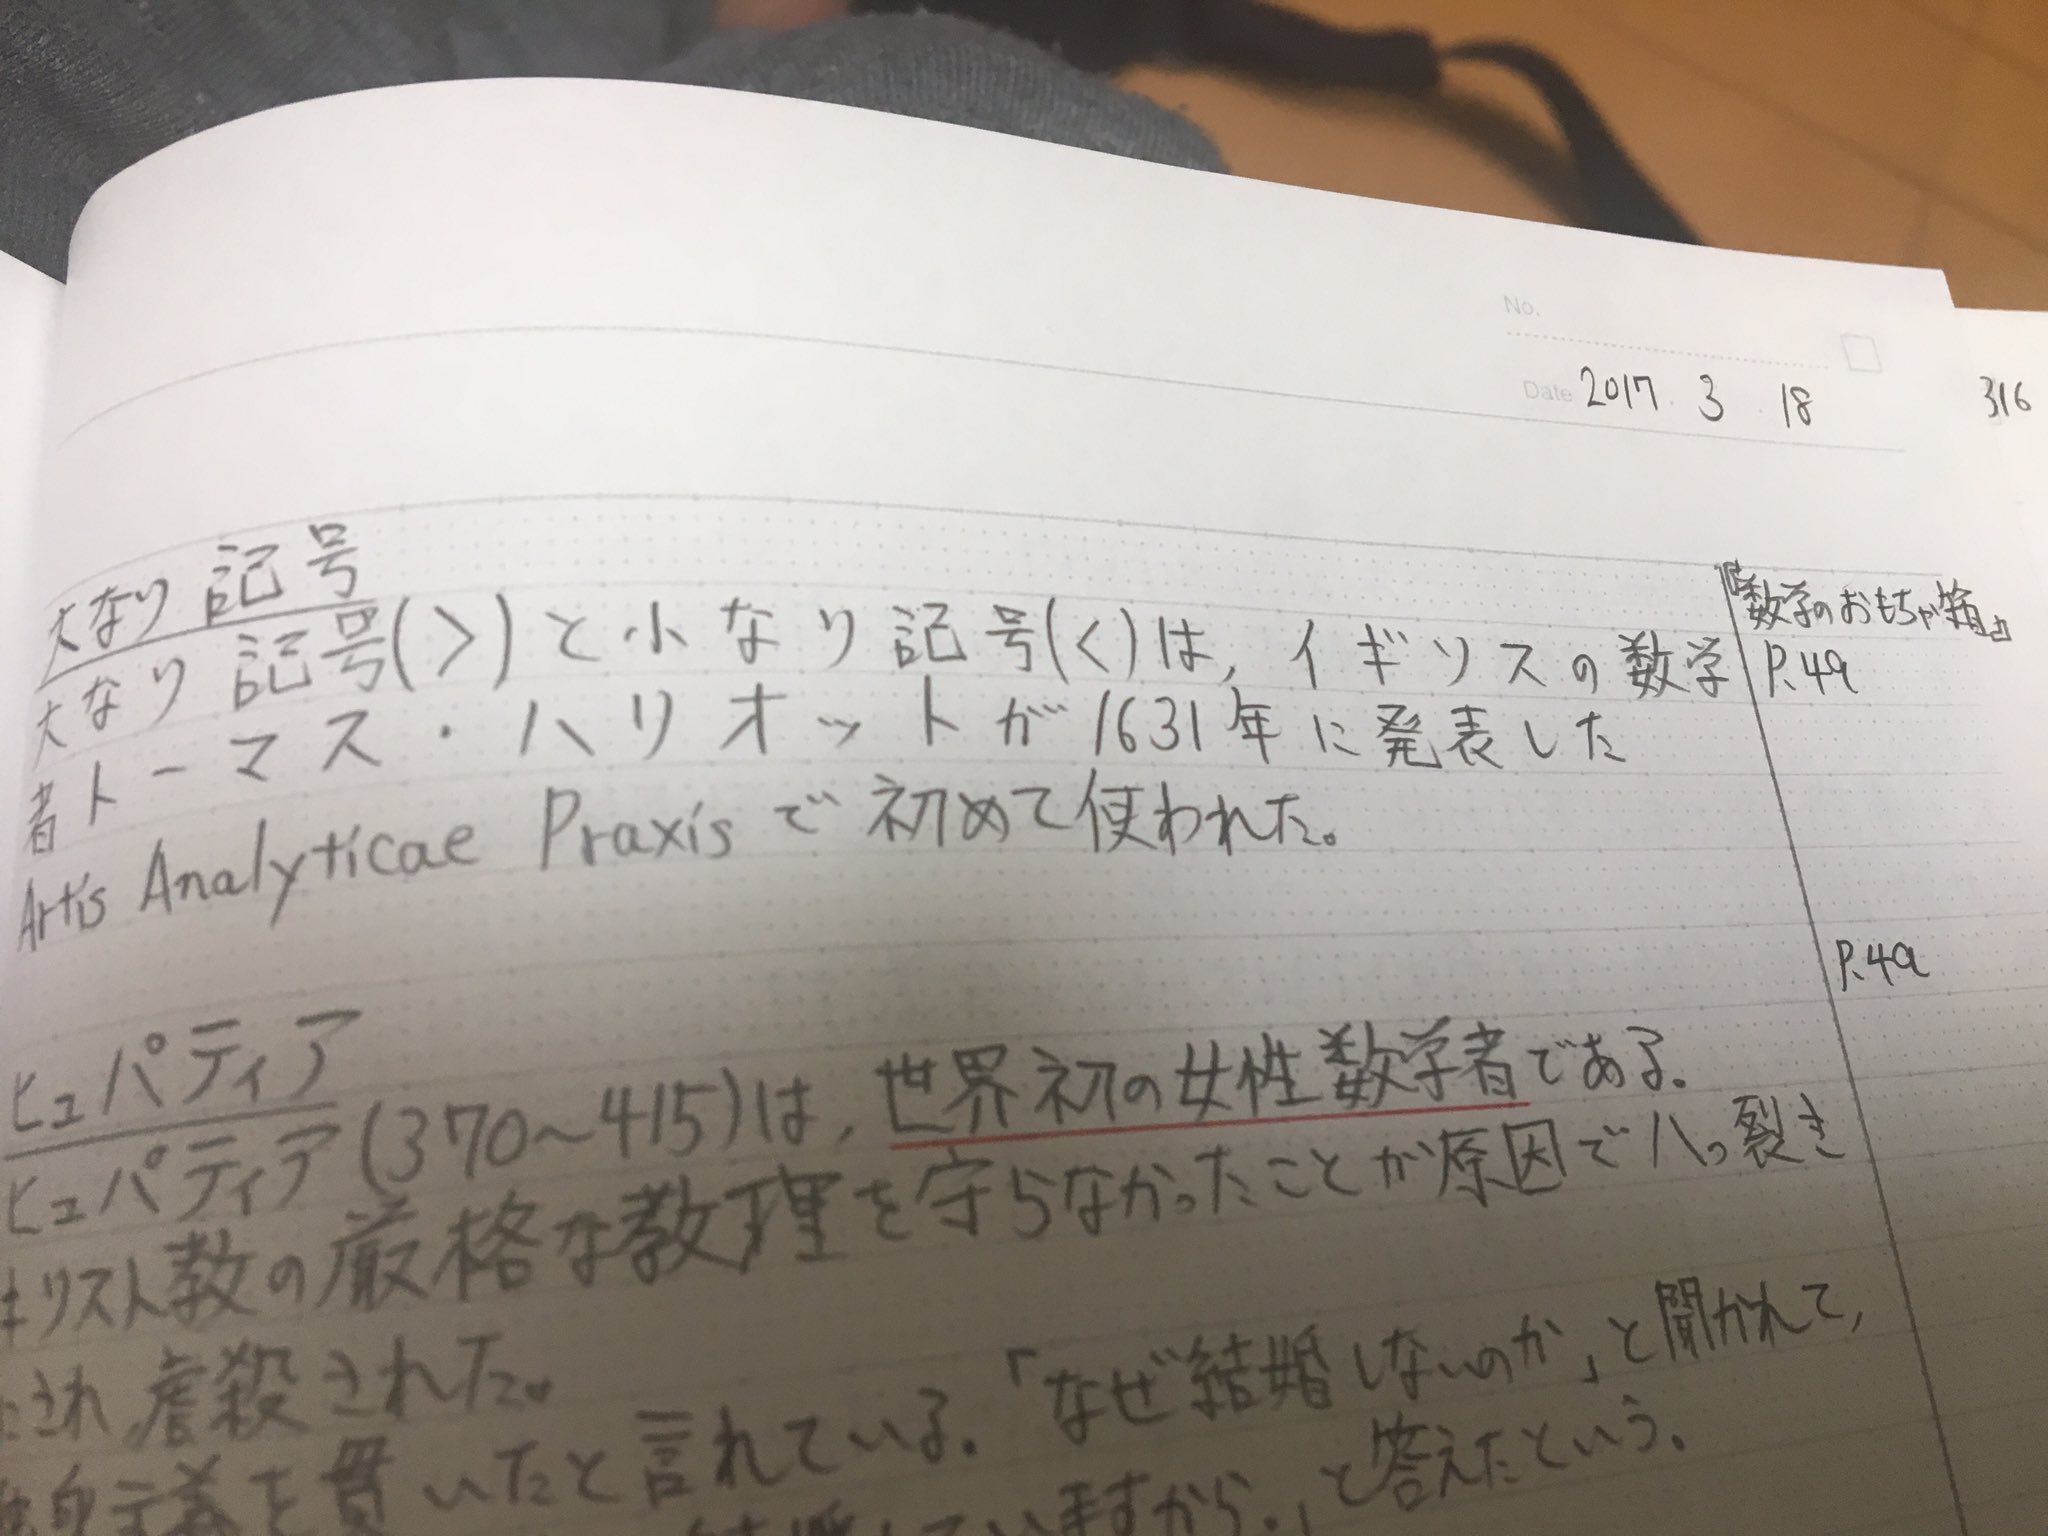 No.
Date 2017. 3. 18
316
大なり記号
大なり記号(>)と小なり記号(<)は,イギリスの数学
『数学のおもちゃ箱上』
P.49
者トーマス・ハリオットが1631年に発表した
Artis Analyticae Praxisで初めて使われた。
P.49
ヒュパティア
ヒュパティア(370~415)は,世界初の女性数学者である。
キリスト教の厳格な教理を守らなかったことが原因で八つ裂き
にされ,虐殺された。
独身主義を貫いたと言われている。「なぜ結婚しないのか」と聞かれて,
結婚していますから。」と答えたという。